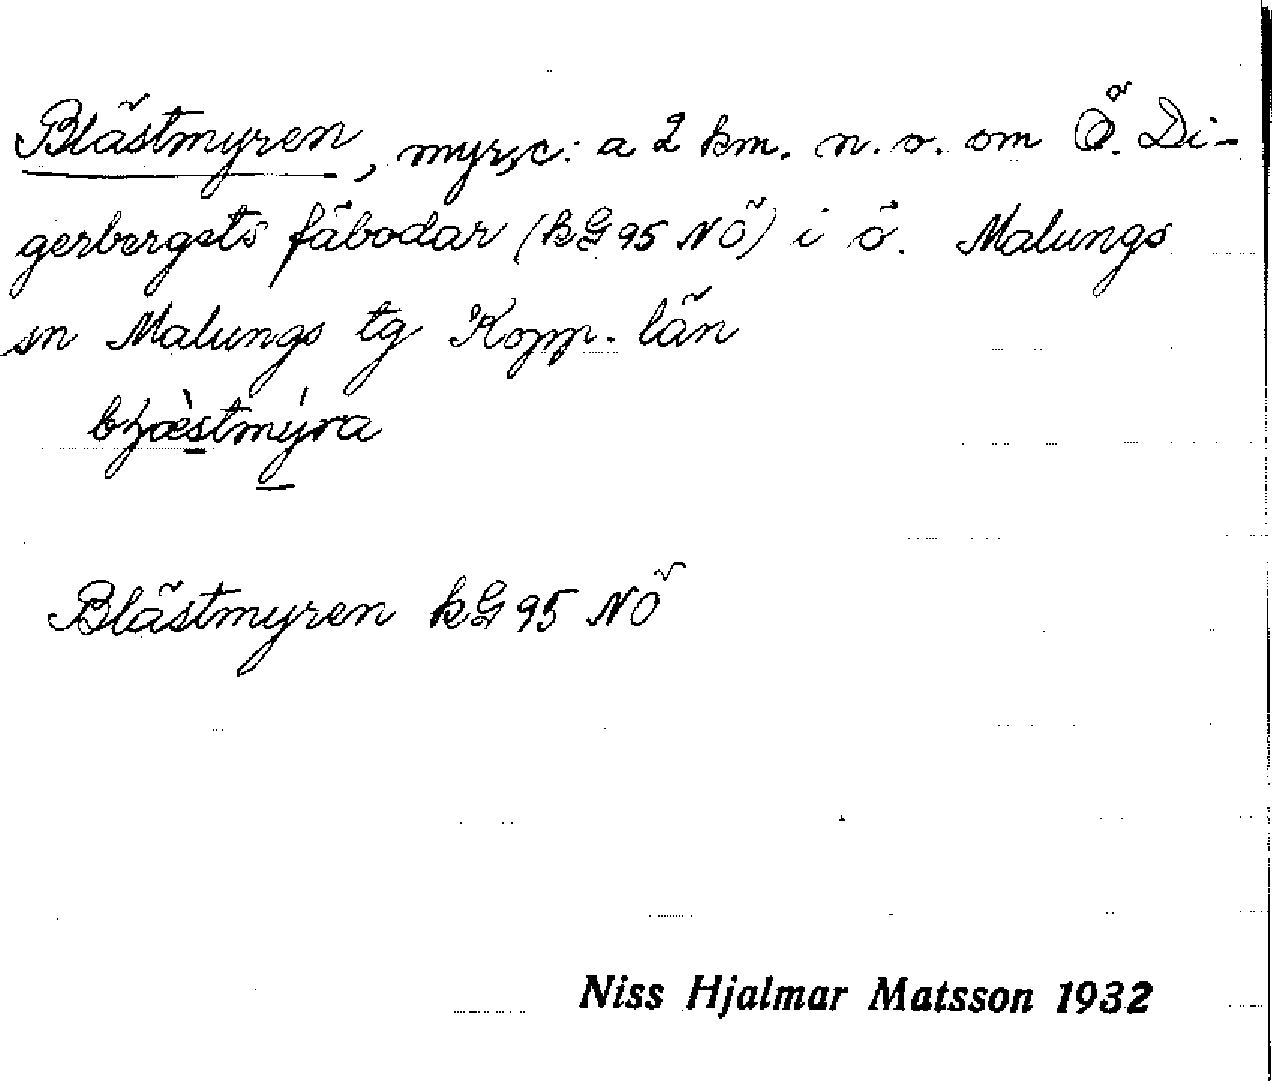 Blästmyren, myr, c:a 2 km. n.v. om Ö. Di-
gerbergets fäbodar (kG95 NÖ) i ö. Malungs
sn Malungs tg Kopp. län
bḥæ̀stmýra
Blästmyren kG95 NÖ
Niss Hjalmar Matsson 1932